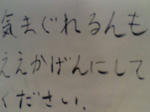 気まぐれるんも
ええかげんにして
ください。